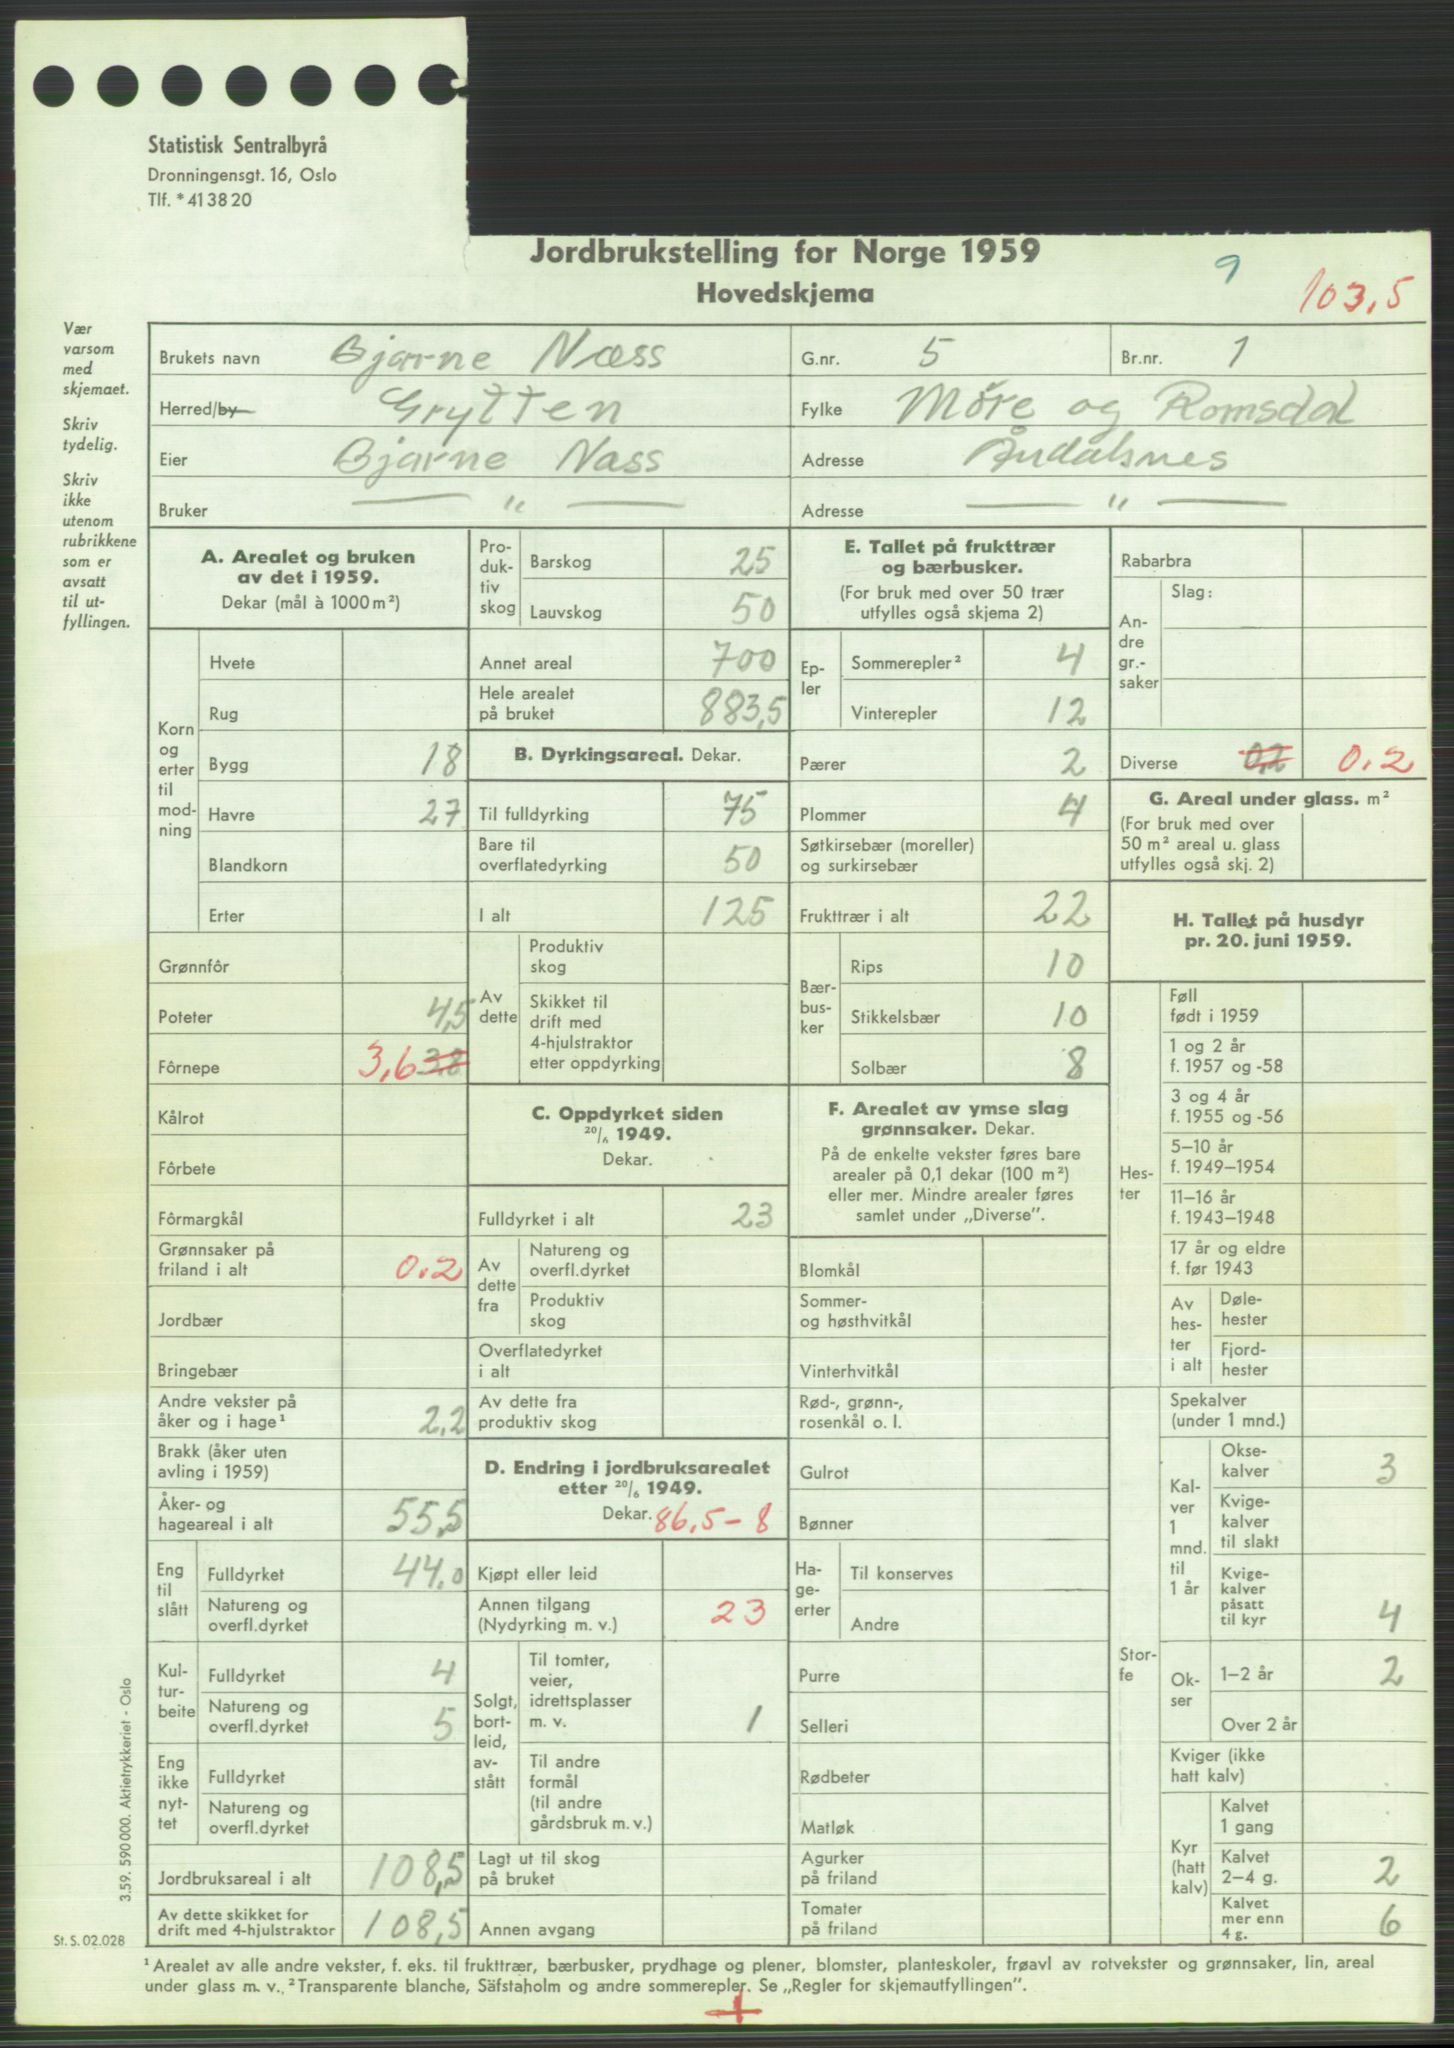 Statistisk Sentralbyrå
Dronningensgt. 16, Oslo
Tlf. * 41 38 20
Jordbrukstelling for Norge 1959
Hovedskjema
9
103,5
Vær
varsom
med
skjemaet.
Skriv
tydelig.
Skriv
ikke
utenom
rubrikkene
som er
avsatt
til ut-
fyllingen.
Brukets navn Bjarne Næss G.nr. 5 Br.nr. 1
Herred/by Grytten Fylke Møre og Romsdal
Eier Bjarne Næss Adresse Åndalsnes
Bruker — " — Adresse — " —
A. Arealet og bruken
av det i 1959.
Dekar (mål à 1000 m²)
Korn
og
erter
til
mod-
ning
Hvete
Rug
Bygg 18
Havre 27
Blandkorn
Erter
Grønnfôr
Poteter 4,5
Fôrnepe 3,6 3,8
Kålrot
Fôrbete
Fôrmargkål
Grønnsaker på
friland i alt 0.2
Jordbær
Bringebær
Andre vekster på
åker og i hage¹ 2,2
Brakk (åker uten
avling i 1959)
Åker- og
hageareal i alt 55,5
Eng
til
slått
Fulldyrket 44,0
Natureng og
overfl.dyrket
Kul-
tur-
beite
Fulldyrket 4
Natureng og
overfl.dyrket 5
Eng
ikke
nyt-
tet
Fulldyrket
Natureng og
overfl.dyrket
Jordbruksareal i alt 108,5
Av dette skikket for
drift med 4-hjulstraktor 108,5
Pro-
duk-
tiv
skog
Barskog 25
Lauvskog 50
Annet areal 700
Hele arealet
på bruket 883,5
B. Dyrkingsareal. Dekar.
Til fulldyrking 75
Bare til
overflatedyrking 50
I alt 125
Av
dette
Produktiv
skog
Skikket til
drift med
4-hjulstraktor
etter oppdyrking
C. Oppdyrket siden
20/6 1949.
Dekar.
Fulldyrket i alt 23
Av
dette
fra
Natureng og
overfl.dyrket
Produktiv
skog
Overflatedyrket
i alt
Av dette fra
produktiv skog
D. Endring i jordbruksarealet
etter 20/6 1949.
Dekar. 86,5 - 8
Kjøpt eller leid
Annen tilgang
(Nydyrking m. v.) 23
Solgt,
bort-
leid,
av-
stått
Til tomter,
veier,
idrettsplasser
m. v. 1
Til andre
formål
(til andre
gårdsbruk m. v.)
Lagt ut til skog
på bruket
Annen avgang
E. Tallet på frukttrær
og bærbusker.
(For bruk med over 50 trær
utfylles også skjema 2)
Ep-
ler
Sommerepler² 4
Vinterepler 12
Pærer 2
Plommer 4
Søtkirsebær (moreller)
og surkirsebær
Frukttrær i alt 22
Bær-
bus-
ker
Rips 10
Stikkelsbær 10
Solbær 8
F. Arealet av ymse slag
grønnsaker. Dekar.
På de enkelte vekster føres bare
arealer på 0,1 dekar (100 m²)
eller mer. Mindre arealer føres
samlet under „Diverse”.
Blomkål
Sommer-
og høsthvitkål
Vinterhvitkål
Rød-, grønn-,
rosenkål o. l.
Gulrot
Bønner
Ha-
ge-
erter
Til konserves
Andre
Purre
Selleri
Rødbeter
Matløk
Agurker
på friland
Tomater
på friland
Rabarbra
An-
dre
gr.-
saker
Slag:
Diverse 0,2 0.2
G. Areal under glass. m²
(For bruk med over
50 m² areal u. glass
utfylles også skj. 2)
H. Tallet på husdyr
pr. 20. juni 1959.
Hes-
ter
Føll
født i 1959
1 og 2 år
f. 1957 og -58
3 og 4 år
f. 1955 og -56
5–10 år
f. 1949–1954
11–16 år
f. 1943–1948
17 år og eldre
f. før 1943
Av
hes-
ter
i alt
Døle-
hester
Fjord-
hester
Stor-
fe
Spekalver
(under 1 mnd.)
Kal-
ver
1
mnd.
til
1 år
Okse-
kalver 3
Kvige-
kalver
til slakt
Kvige-
kalver
påsatt
til kyr 4
Ok-
ser
1–2 år 2
Over 2 år
Kviger (ikke
hatt kalv)
Kyr
(hatt
kalv)
Kalvet
1 gang
Kalvet
2–4 g. 2
Kalvet
mer enn
4 g. 6
3.59. 590 000. Aktietrykkeriet - Oslo
St. S. 02.028
¹ Arealet av alle andre vekster, f. eks. til frukttrær, bærbusker, prydhage og plener, blomster, planteskoler, frøavl av rotvekster og grønnsaker, lin, areal
under glass m. v., ² Transparente blanche, Säfstaholm og andre sommerepler. Se „Regler for skjemautfyllingen”.
+